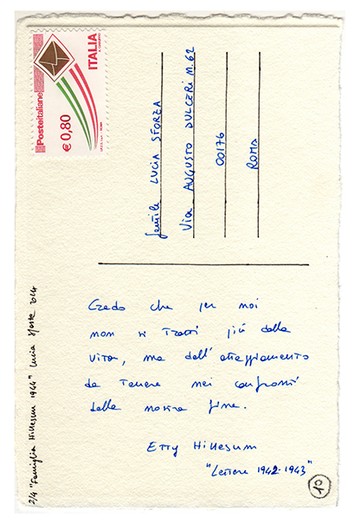 Posteitaliane
ITALIA
€ 0,80
Gentile LUCIA SFORZA
Via AUGUSTO DULCERI M. 62
00176
ROMA
Credo che per noi
non si tratti più della
vita, ma dell'atteggiamento
da tenere nei confronti
della nostra fine.
Etty Hillesum
"Lettere 1942-1943"
10
2/4 "Famiglia Hillesum 1944" Lucia 2014